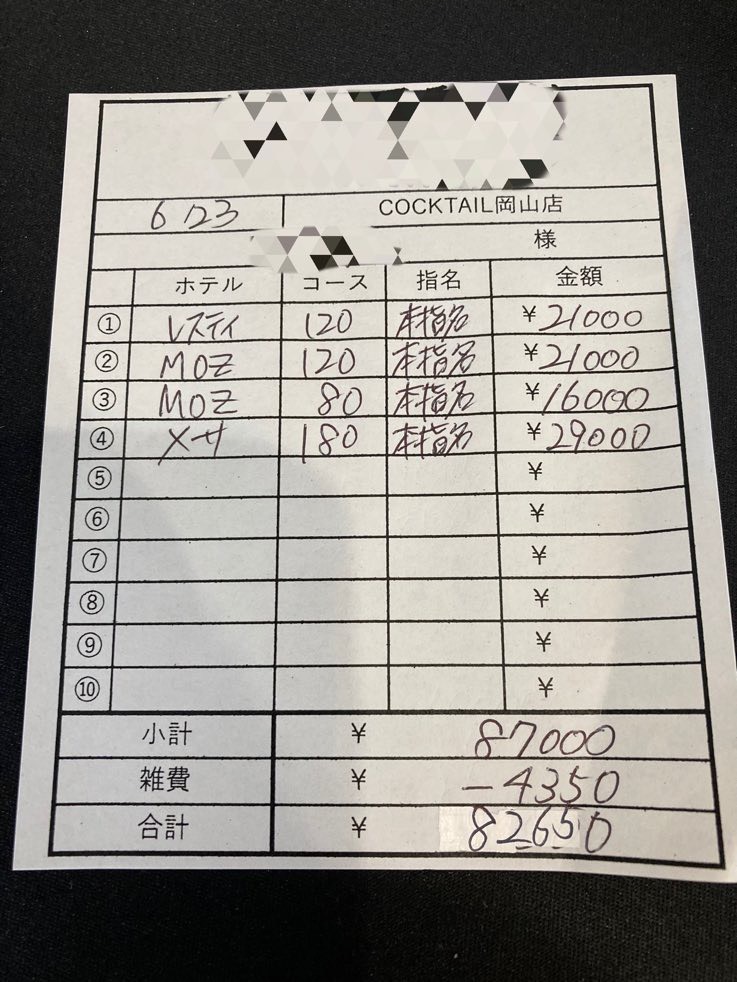 6/23 COCKTAIL岡山店
様
ホテル コース 指名 金額
① レスティ 120 本指名 ¥21000
② MOZ 120 本指名 ¥21000
③ MOZ 80 本指名 ¥16000
④ メサ 180 本指名 ¥29000
⑤ ¥
⑥ ¥
⑦ ¥
⑧ ¥
⑨ ¥
⑩ ¥
小計 ¥ 87000
雑費 ¥ -4350
合計 ¥ 82650